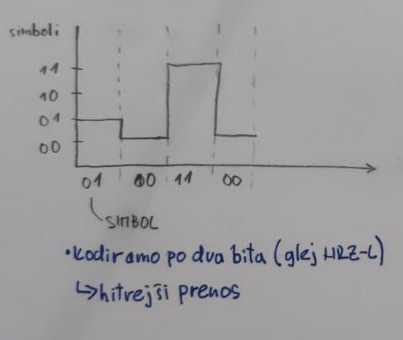 simboli
11
10
01
00
01 00 11 00
SIMBOL
• kodiramo po dva bita (glej NRZ-L)
↳ hitrejši prenos